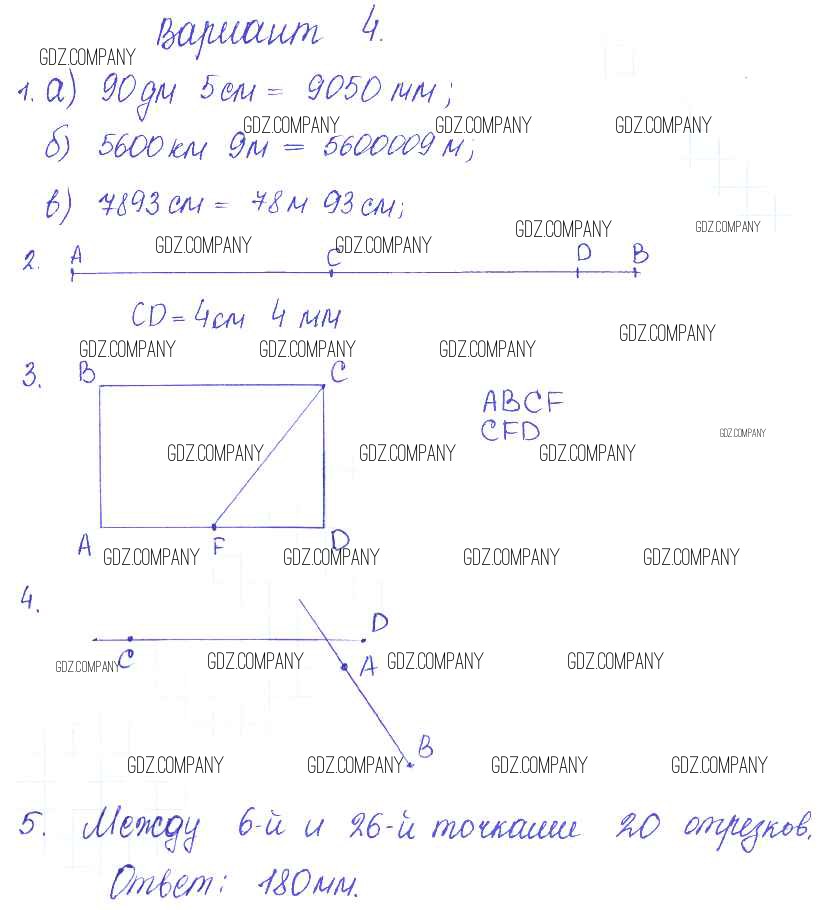 Вариант 4.
GDZ.COMPANY
1. а) 90 дм 5 см = 9050 мм;
GDZ.COMPANY GDZ.COMPANY GDZ.COMPANY
б) 5600 км 9 м = 5600009 м;
в) 7893 см = 78 м 93 см;
GDZ.COMPANY GDZ.COMPANY GDZ.COMPANY GDZ.COMPANY
2. A C D B
CD = 4 см 4 мм
GDZ.COMPANY GDZ.COMPANY GDZ.COMPANY GDZ.COMPANY
3. B C
ABCF
CFD
GDZ.COMPANY GDZ.COMPANY GDZ.COMPANY GDZ.COMPANY
A F D
GDZ.COMPANY GDZ.COMPANY GDZ.COMPANY GDZ.COMPANY
4.
D
C A
GDZ.COMPANY GDZ.COMPANY GDZ.COMPANY GDZ.COMPANY
B
GDZ.COMPANY GDZ.COMPANY GDZ.COMPANY GDZ.COMPANY
5. Между 6-й и 26-й точками 20 отрезков.
Ответ: 180 мм.